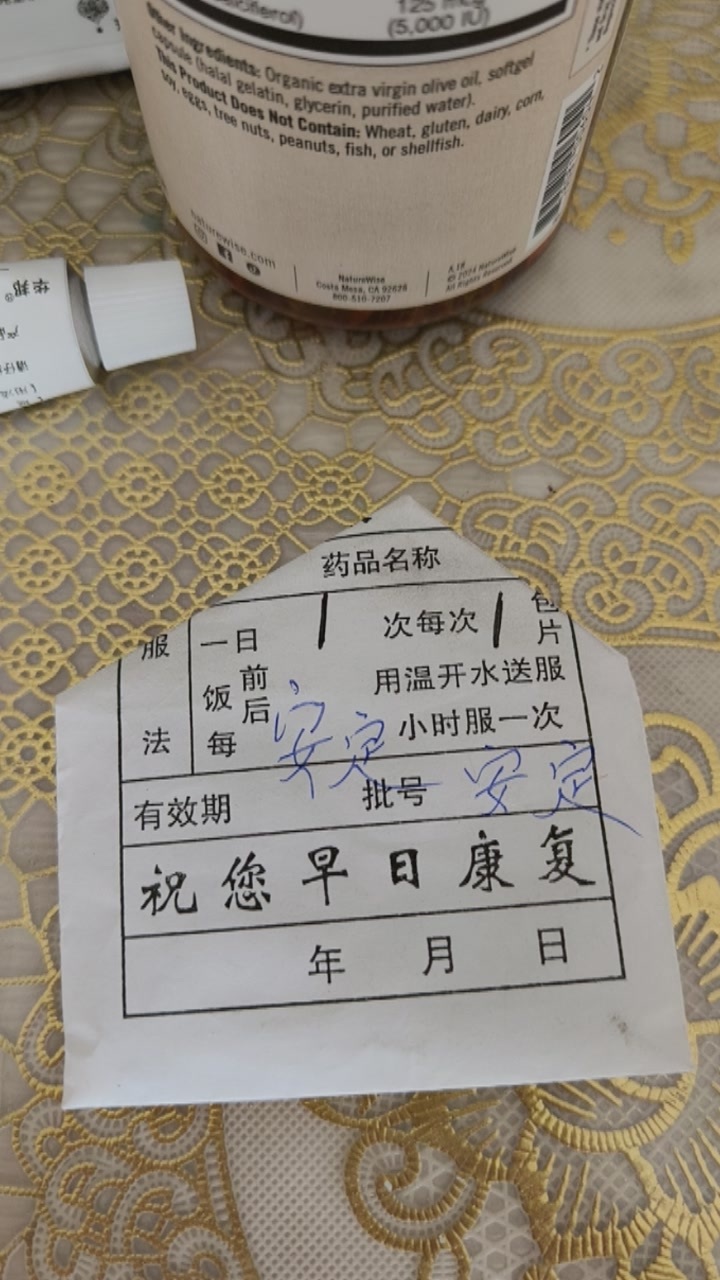 125 mcg
(5,000 IU)
Other Ingredients: Organic extra virgin olive oil, softgel
capsule (halal gelatin, glycerin, purified water).
This Product Does Not Contain: Wheat, gluten, dairy, corn,
soy, eggs, tree nuts, peanuts, fish, or shellfish.
naturewise.com
NatureWise
Costa Mesa, CA 92626
800-510-7207
© 2024 NatureWise
All Rights Reserved
华邦®
药品名称
服法
一日 / 次每次 / 包片
饭前后 用温开水送服
每 小时服一次
安定
有效期 批号
安定
祝您早日康复
年 月 日